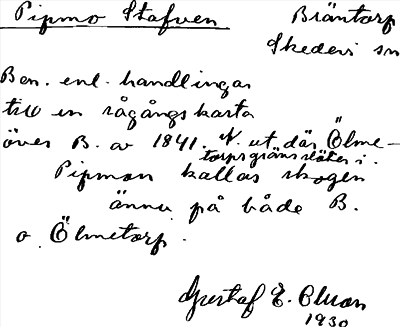 Pipmo Stafven Bräntorp
Skedevi sn
Ben. enl. handlingar
till en rågångskarta
över B. av 1841. N. ut, där Ölme-
torps gräns stöter i.
Pipmon kallas skogen
ännu på både B.
o Ölmetorp.
Gustaf E. Olson
1930